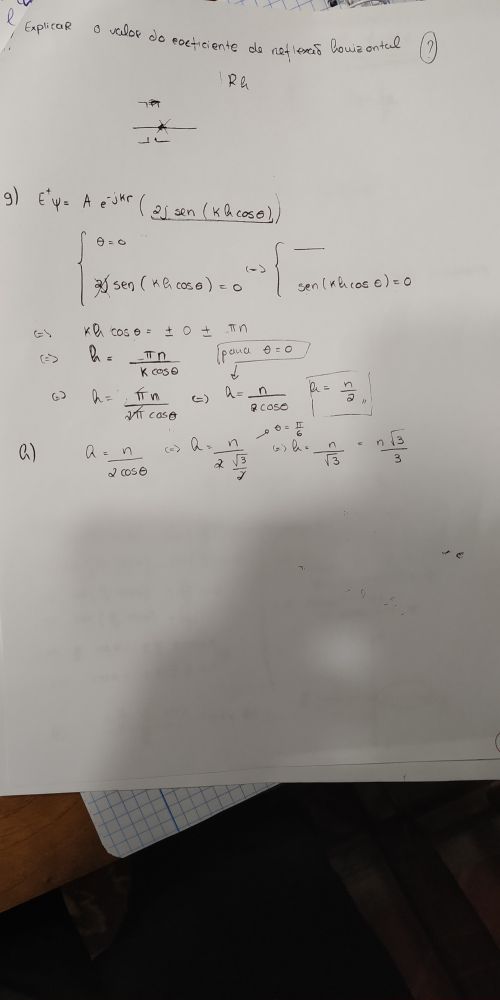 Explicar o valor do coeficiente de reflexão horizontal (?)
Rh
g) E⁺ψ = A e^-jkr ( 2j sen (kh cosθ) )
{ θ = 0
2j sen (kh cosθ) = 0 (=) { — sen (kh cosθ) = 0
(=) kh cosθ = ± 0 ± πn
(=) h = πn / k cosθ para θ = 0
(=) h = πn / 2π cosθ (=) h = n / 2cosθ h = n/2 ,,
h) h = n / 2cosθ (=) h = n / 2 √3/2 θ = π/6 (=) h = n / √3 = n√3 / 3